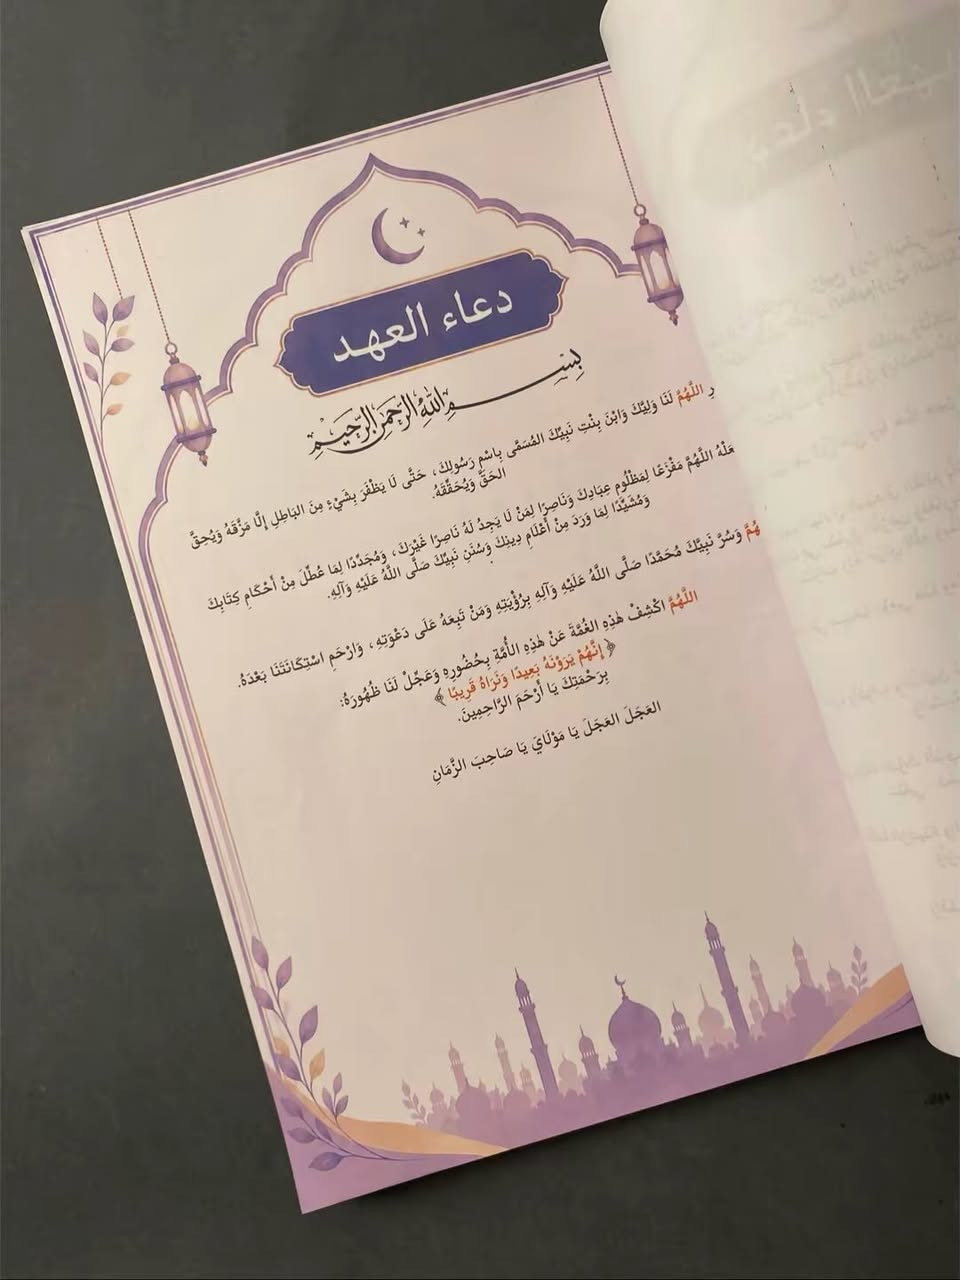 دعاء العهد
بِسْمِ اللَّهِ الرَّحْمَنِ الرَّحِيمِ
اللَّهُمَّ لَنَا وَلِيَّكَ وَابْنَ بِنْتِ نَبِيِّكَ المُسَمَّى بِاسْمِ رَسُولِكَ، حَتَّى لَا يَظْفَرَ بِشَيْءٍ مِنَ البَاطِلِ إِلَّا مَزَّقَهُ وَيُحِقَّ
الحَقَّ وَيُحَقِّقَهُ.
اللَّهُمَّ مَفْزَعًا لِمَظْلُومِ عِبَادِكَ وَنَاصِرًا لِمَنْ لَا يَجِدُ لَهُ نَاصِرًا غَيْرَكَ، وَمُجَدِّدًا لِمَا عُطِّلَ مِنْ أَحْكَامِ كِتَابِكَ
وَمُشَيِّدًا لِمَا وَرَدَ مِنْ أَعْلَامِ دِينِكَ وَسُنَنِ نَبِيِّكَ صَلَّى اللَّهُ عَلَيْهِ وَآلِهِ.
وَسُرَّ نَبِيَّكَ مُحَمَّدًا صَلَّى اللَّهُ عَلَيْهِ وَآلِهِ بِرُؤْيَتِهِ وَمَنْ تَبِعَهُ عَلَى دَعْوَتِهِ، وَارْحَمِ اسْتِكَانَتَنَا بَعْدَهُ.
اللَّهُمَّ اكْشِفْ هَذِهِ الغُمَّةَ عَنْ هَذِهِ الأُمَّةِ بِحُضُورِهِ وَعَجِّلْ لَنَا ظُهُورَهُ:
﴿إِنَّهُمْ يَرَوْنَهُ بَعِيدًا وَنَرَاهُ قَرِيبًا﴾
بِرَحْمَتِكَ يَا أَرْحَمَ الرَّاحِمِينَ.
العَجَلَ العَجَلَ يَا مَوْلَايَ يَا صَاحِبَ الزَّمَانِ